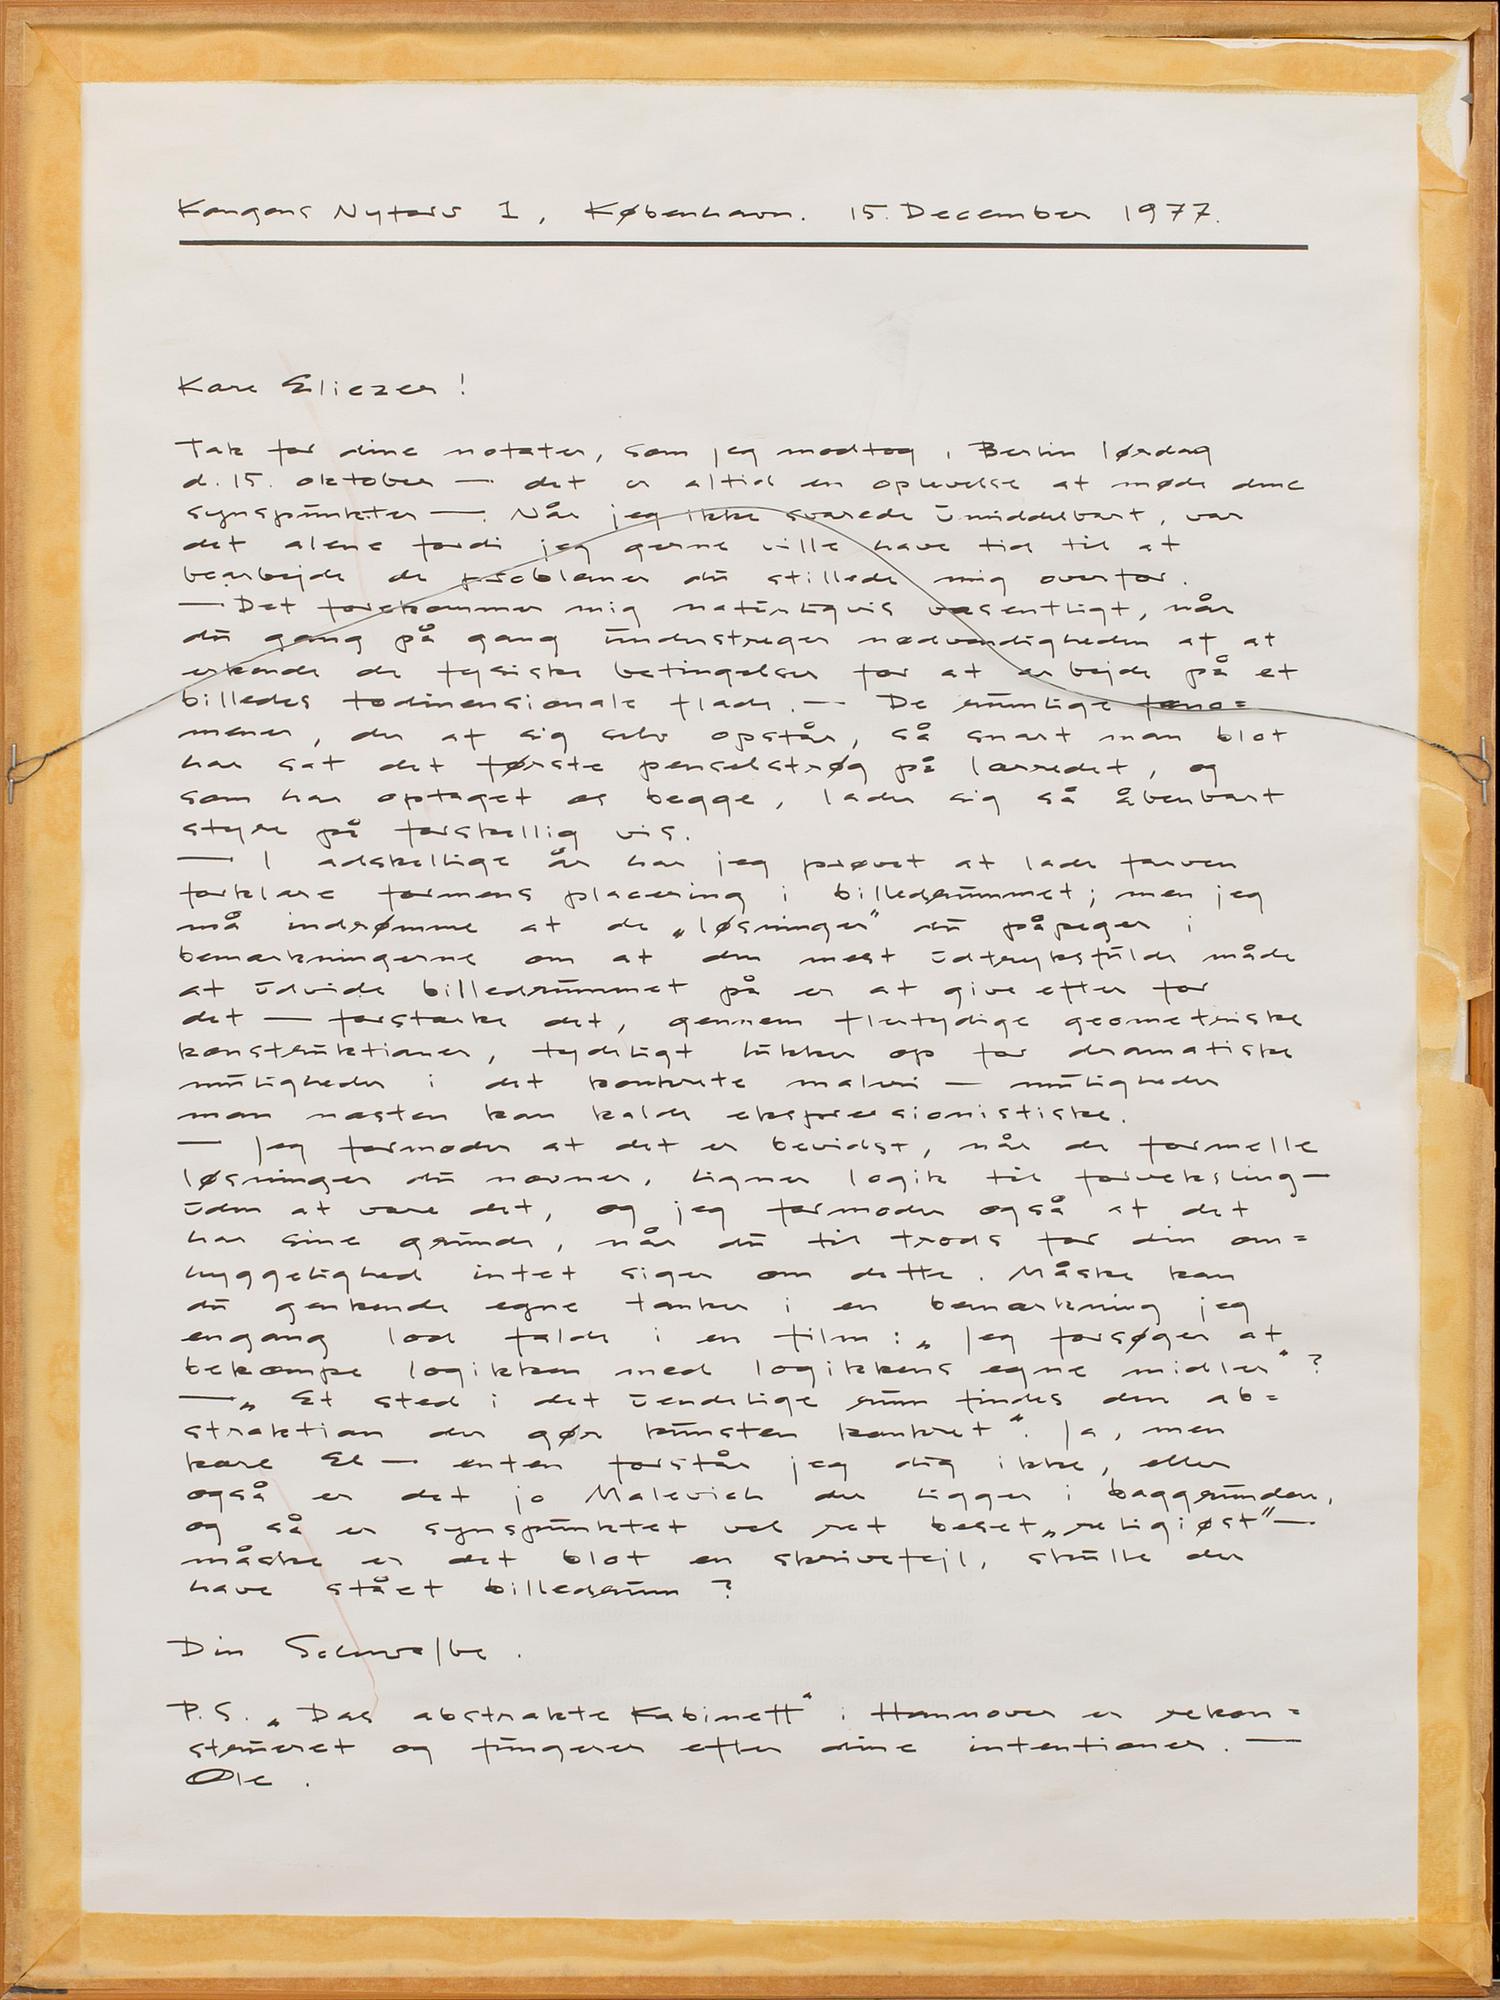 Kongens Nytorv 1, København. 15. December 1977.
Kære Eliezer!
Tak for dine notater, som jeg modtog i Berlin lørdag
d. 15. oktober — det er altid en oplevelse at møde dine
synspunkter —. Når jeg ikke svarede umiddelbart, var
det alene fordi jeg gerne ville have tid til at
bearbejde de problemer du stillede mig overfor.
— Det forekommer mig naturligvis væsentligt, når
du gang på gang understreger nødvendigheden af at
erkende de fysiske betingelser for at arbejde på et
billedes todimensionale flade. — De rumlige fæno=
mener, der af sig selv opstår, så snart man blot
har sat det første penselstrøg på lærredet, og
som har optaget os begge, lader sig så åbenbart
styre på forskellig vis.
— I adskellige år har jeg prøvet at lade farven
forklare formens placering i billedrummet; men jeg
må indrømme at de „løsninger" du påpeger i
bemærkningerne om at den mest udtryksfulde måde
at udvide billedrummet på er at give efter for
det — forstærke det, gennem flertydige geometriske
konstruktioner, tydeligt lukker op for dramatiske
muligheder i det konkrete maleri — muligheder
man næsten kan kalde ekspressionistiske.
— Jeg formoder at det er bevidst, når de formelle
løsninger du nævner, ligner logik til forveksling —
uden at være det, og jeg formoder også at det
har sine grunde, når du til trods for din om=
hyggelighed intet siger om dette. Måske kan
du genkende egne tanker i en bemærkning jeg
engang lod falde i en film: „Jeg forsøger at
bekæmpe logikken med logikkens egne midler" ?
— „Et sted i det uendelige rum findes den ab=
straktion der gør kunsten konkret". Ja, men
kære El — enten forstår jeg dig ikke, eller
også er det jo Malevich der ligger i baggrunden,
og så er synspunktet vel ret beset „religiøst" —
måske er det blot en skrivefejl, skulle der
have stået billedrum ?
Din Schwalbe.
P.S. „Das abstrakte Kabinett" i Hannover er rekon=
strueret og fungerer efter dine intentioner. —
Ole.